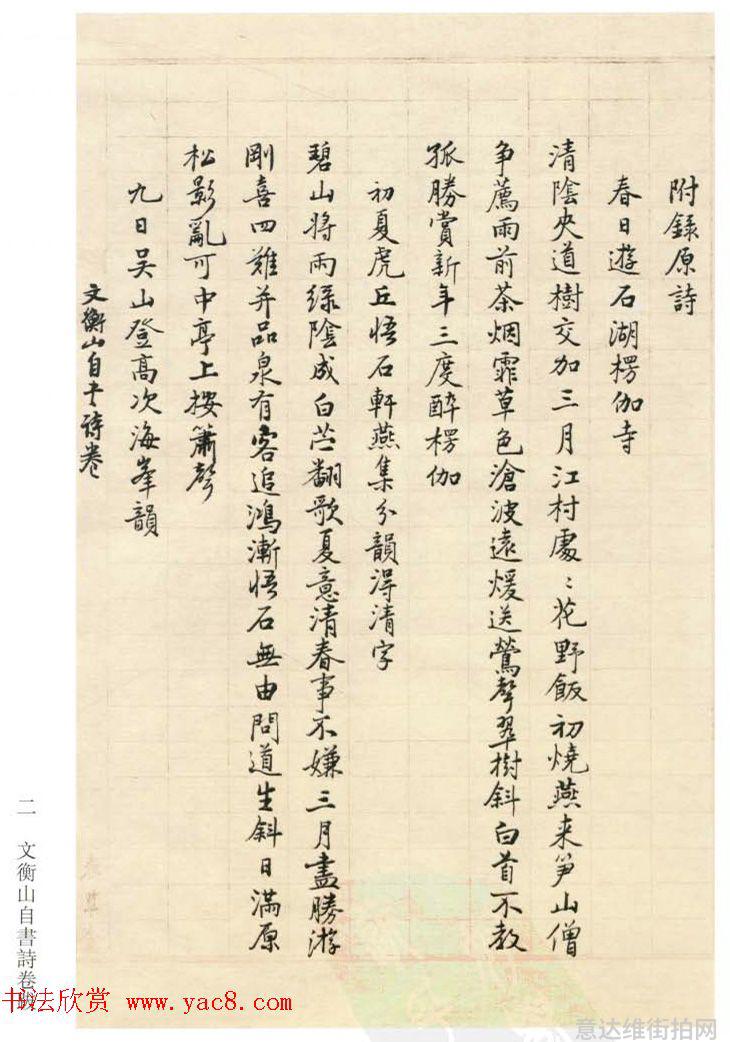 附錄原詩
春日遊石湖楞伽寺
清陰夾道樹交加三月江村處〻花野飯初燒燕来笋山僧
争薦雨前茶烟霏草色滄波遠煖送鶯聲翠樹斜白首不教
孤勝賞新年三度醉楞伽
初夏虎丘悟石軒燕集分韻淂清字
碧山將雨綠陰成白苎翻歌夏意清春事不嫌三月盡勝游
剛喜四難并品泉有客追鴻漸悟石無由問道生斜日滿原
松影亂可中亭上按簫聲
九日吴山登高次海峯韻
文衡山自书诗卷
二 文衡山自書詩卷跋
书法欣赏 www.yac8.com
意达维街拍网